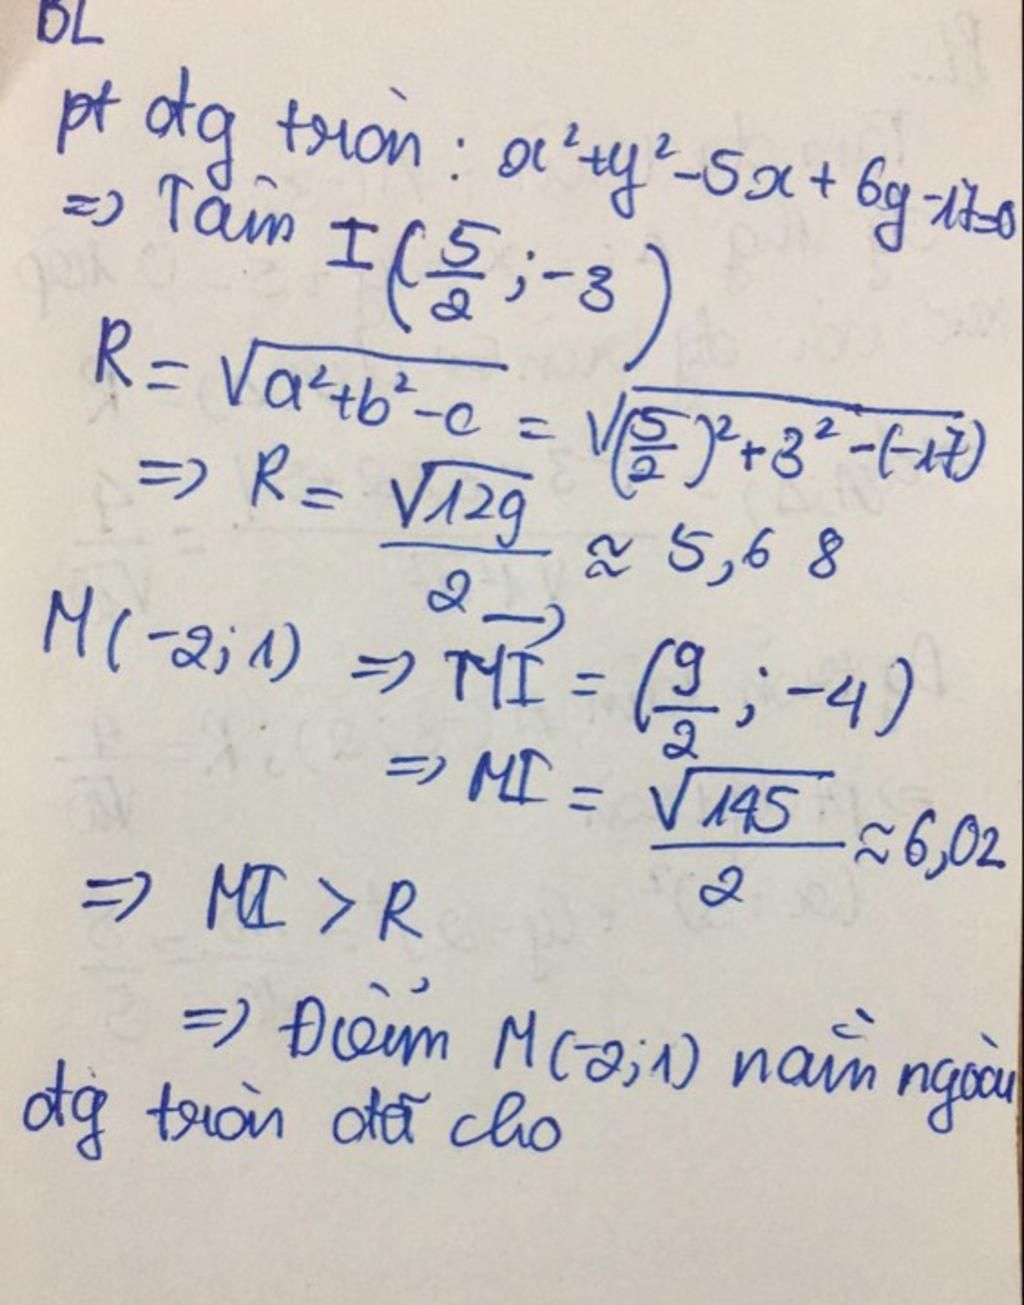 BL
pt đtg tròn : x²+y²-5x+6y-17=0
=> Tâm I(5/2 ; -3)
R = √(a²+b²-c) = √((5/2)²+3²-(-17))
=> R = √129/2 ≈ 5,68
M(-2;1) => \overrightarrow{MI} = (9/2 ; -4)
=> MI = √145/2 ≈ 6,02
=> MI > R
=> Điểm M(-2;1) nằm ngoài
đtg tròn đã cho